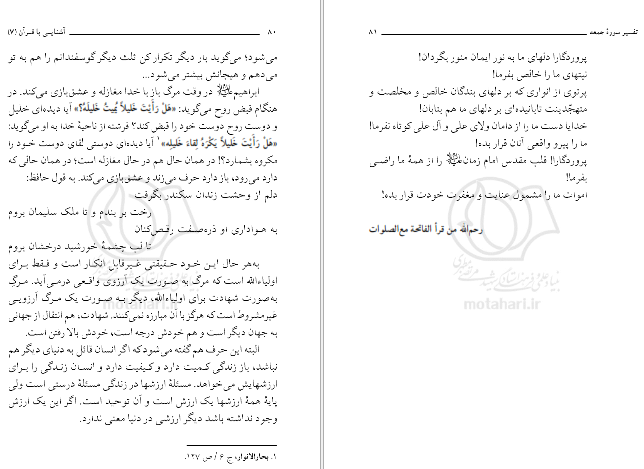 ۸۰ آشنایی با قرآن (۷)
می‌شود؛ می‌گوید بار دیگر تکرار کن ثلث دیگر گوسفندانم را هم به تو
می‌دهم و هیجانش بیشتر می‌شود...
ابراهیم در وقت مرگ باز با خدا مغازله و عشق‌بازی می‌کند. در
هنگام قبض روح می‌گوید: «هَلْ رَأَیْتَ خَلیلاً یُمیتُ خَلیلَهُ؟» آیا دیده‌ای خلیل
و دوست روح دوست خود را قبض کند؟ فرشته از ناحیهٔ خدا به او می‌گوید:
«هَلْ رَأَیْتَ خَلیلاً یَکْرَهُ لِقاءَ خَلیلِهِ»۱ آیا دیده‌ای دوستی لقای دوست خود را
مکروه بشمارد؟! در همان حال هم در حال مغازله است؛ در همان حالی که
دارد می‌رود، باز دارد حرف می‌زند و عشق‌بازی می‌کند. به قول حافظ:
دلم از وحشت زندان سکندر بگرفت
رخت بر بندم و تا ملک سلیمان بروم
به هواداری او ذره‌صفت رقص‌کنان
تا لب چشمهٔ خورشید درخشان بروم
به‌هر حال این خود حقیقتی غیرقابل انکار است و فقط برای
اولیاءالله است که مرگ به صورت یک آرزوی واقعی درمی‌آید. مرگ
به‌صورت شهادت برای اولیاءالله، دیگر به صورت یک مرگ آرزویی
غیرمشروط است که هرگز با آن مبارزه نمی‌کنند. شهادت، هم انتقال از جهانی
به جهان دیگر است و هم خودش درجه است، خودش بالا رفتن است.
البته این حرف هم گفته می‌شود که اگر انسان قائل به دنیای دیگر هم
نباشد، باز زندگی کمیت دارد و کیفیت دارد و انسان زندگی را برای
ارزشهایش می‌خواهد. مسئلهٔ ارزشها در زندگی مسئلهٔ درستی است ولی
پایهٔ همهٔ ارزشها یک ارزش است و آن توحید است. اگر این یک ارزش
وجود نداشته باشد دیگر ارزشی در دنیا معنی ندارد.
۱. بحارالانوار، ج ۶ / ص ۱۲۷.
تفسیر سورهٔ جمعه ۸۱
پروردگارا دلهای ما به نور ایمان منور بگردان!
نیتهای ما را خالص بفرما!
پرتوی از انواری که بر دلهای بندگان خالص و مخلصت و
متهجّدینت تابانیده‌ای بر دلهای ما هم بتابان!
خدایا دست ما را از دامان ولای علی و آل علی کوتاه نفرما!
ما را پیرو واقعی آنان قرار بده!
پروردگارا! قلب مقدس امام زمان را از همهٔ ما راضی
بفرما!
اموات ما را مشمول عنایت و مغفرت خودت قرار بده!
رحم‌الله من قرأ الفاتحة مع‌الصلوات
motahari.ir
motahari.ir